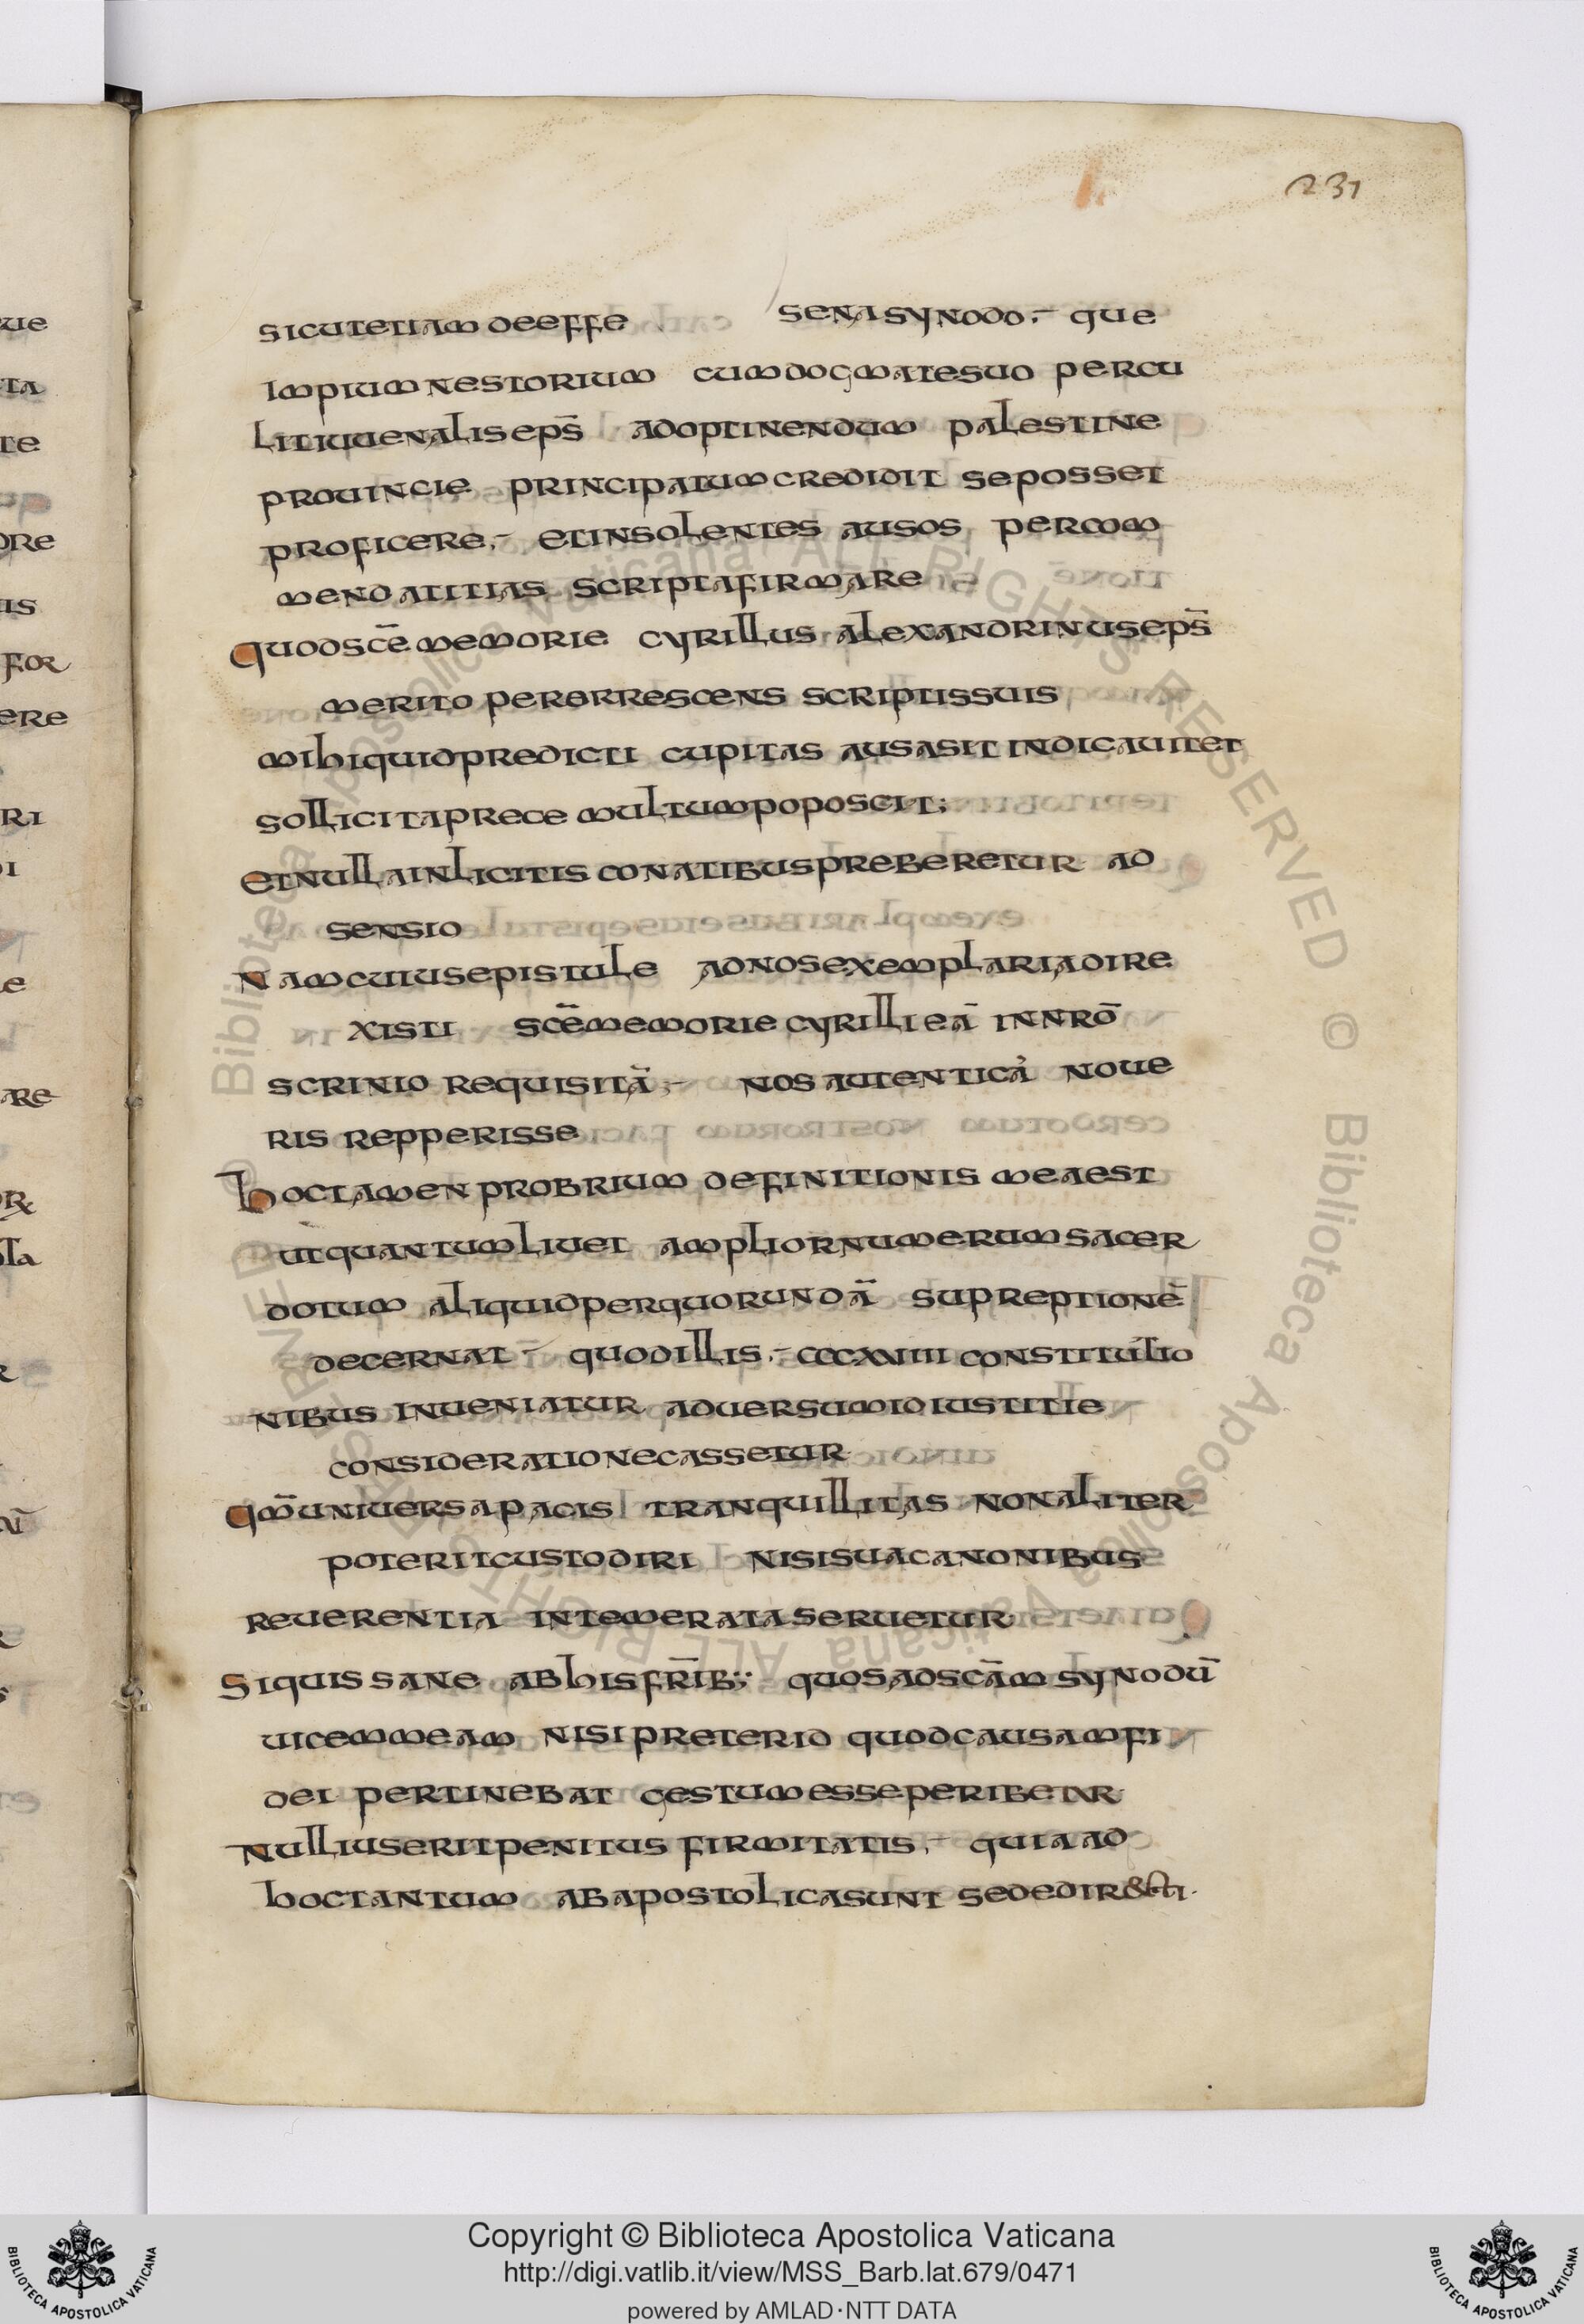 231
sicutetiam deeffe senasynodo.- que
impium nestorium cum dogmatesuo percu
lit iuuenaliseps̄ adoptinendum palestine
prouincie principatum credidit seposset
proficere.- etinsolentes ausos percom
mendatitias scriptafirmare
quodscē memorie cyrillus alexandrinuseps̄
merito perorrescens scriptissuis
mihiquidpredicti cupitas ausasit indicauitet
sollicitaprece multumpoposcit;
etnulla inlicitis conatibuspreberetur ad
sensio
namcuiusepistule adnosexemplariadire
xisti scēmemorie cyrillieā innrō
scrinio requisitā;- nos autenticā noue
ris repperisse
hoctamen probrium definitionis meaest
utquantumliuet ampliornumerum sacer
dotum aliquidperquorundā supreptionē
decernat- quodillis.- cccxviiii constitutio
nibus inueniatur aduersumid iustitie
considerationecassetur
qm̄uniuersapacis tranquillitas nonaliter
poteritcustodiri nisisuacanonibus
reuerentia intemerataseruetur
siquis sane abhisfrīb; quosadscām synodū
uicemmeam nisi preterid quodcausamfi
dei pertinebat gestumesseperibetur
nulliuseritpenitus firmitatis,- quiaad
hoctantum abapostolicasunt sededir&cti.
Copyright © Biblioteca Apostolica Vaticana
http://digi.vatlib.it/view/MSS_Barb.lat.679/0471
powered by AMLAD·NTT DATA
BIBLIOTECA APOSTOLICA VATICANA
BIBLIOTECA APOSTOLICA VATICANA